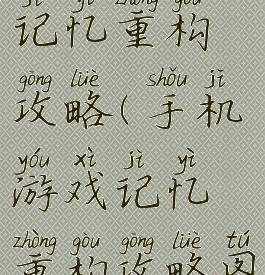 jì yì zhòng gòu
记忆重构
gōng lüè shǒu jī
攻略(手机
yóu xì jì yì
游戏记忆
zhòng gòu gōng lüè tú
重构攻略图